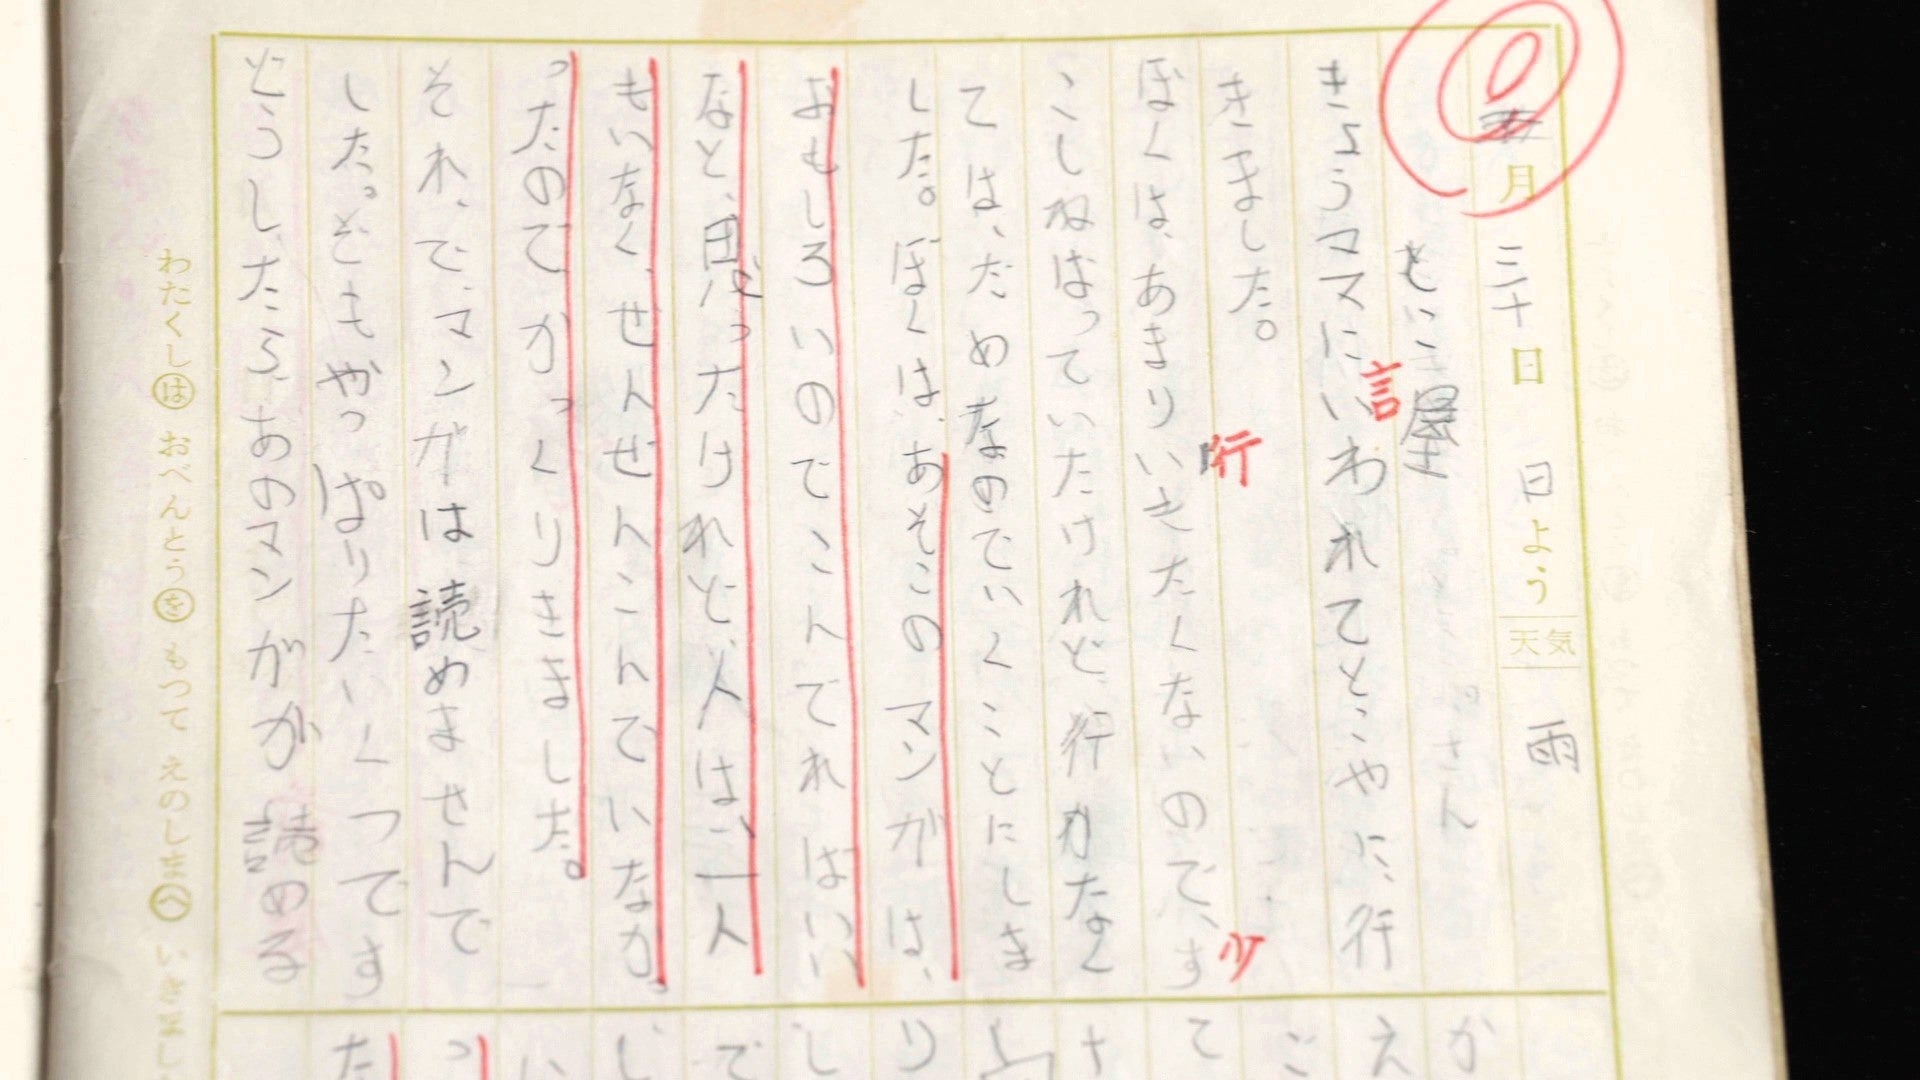 月 三十日 日よう 天気 雨
とこ屋
きょうママにいわれてとこやに行
言
きました。
行
ぼくは、あまりいきたくないので、す
少
こしねばっていたけれど、行かなく
ては、だめなのでいくことにしま
した。ぼくは、あそこのマンガは、
おもしろいのでこんでれはいい
なと、思ったけれど、人は、一人
もいなく、ぜんぜんこんでいなか
ったのでがっくりきました。
それで、マンガは読めませんで
した。でもやっぱりたいくつです
どうしたら、あのマンガが読める
わたくしは おべんとうを もつて えのしまへ
か
え
こ
て
さ
り
し
で
じ
い
っ
た